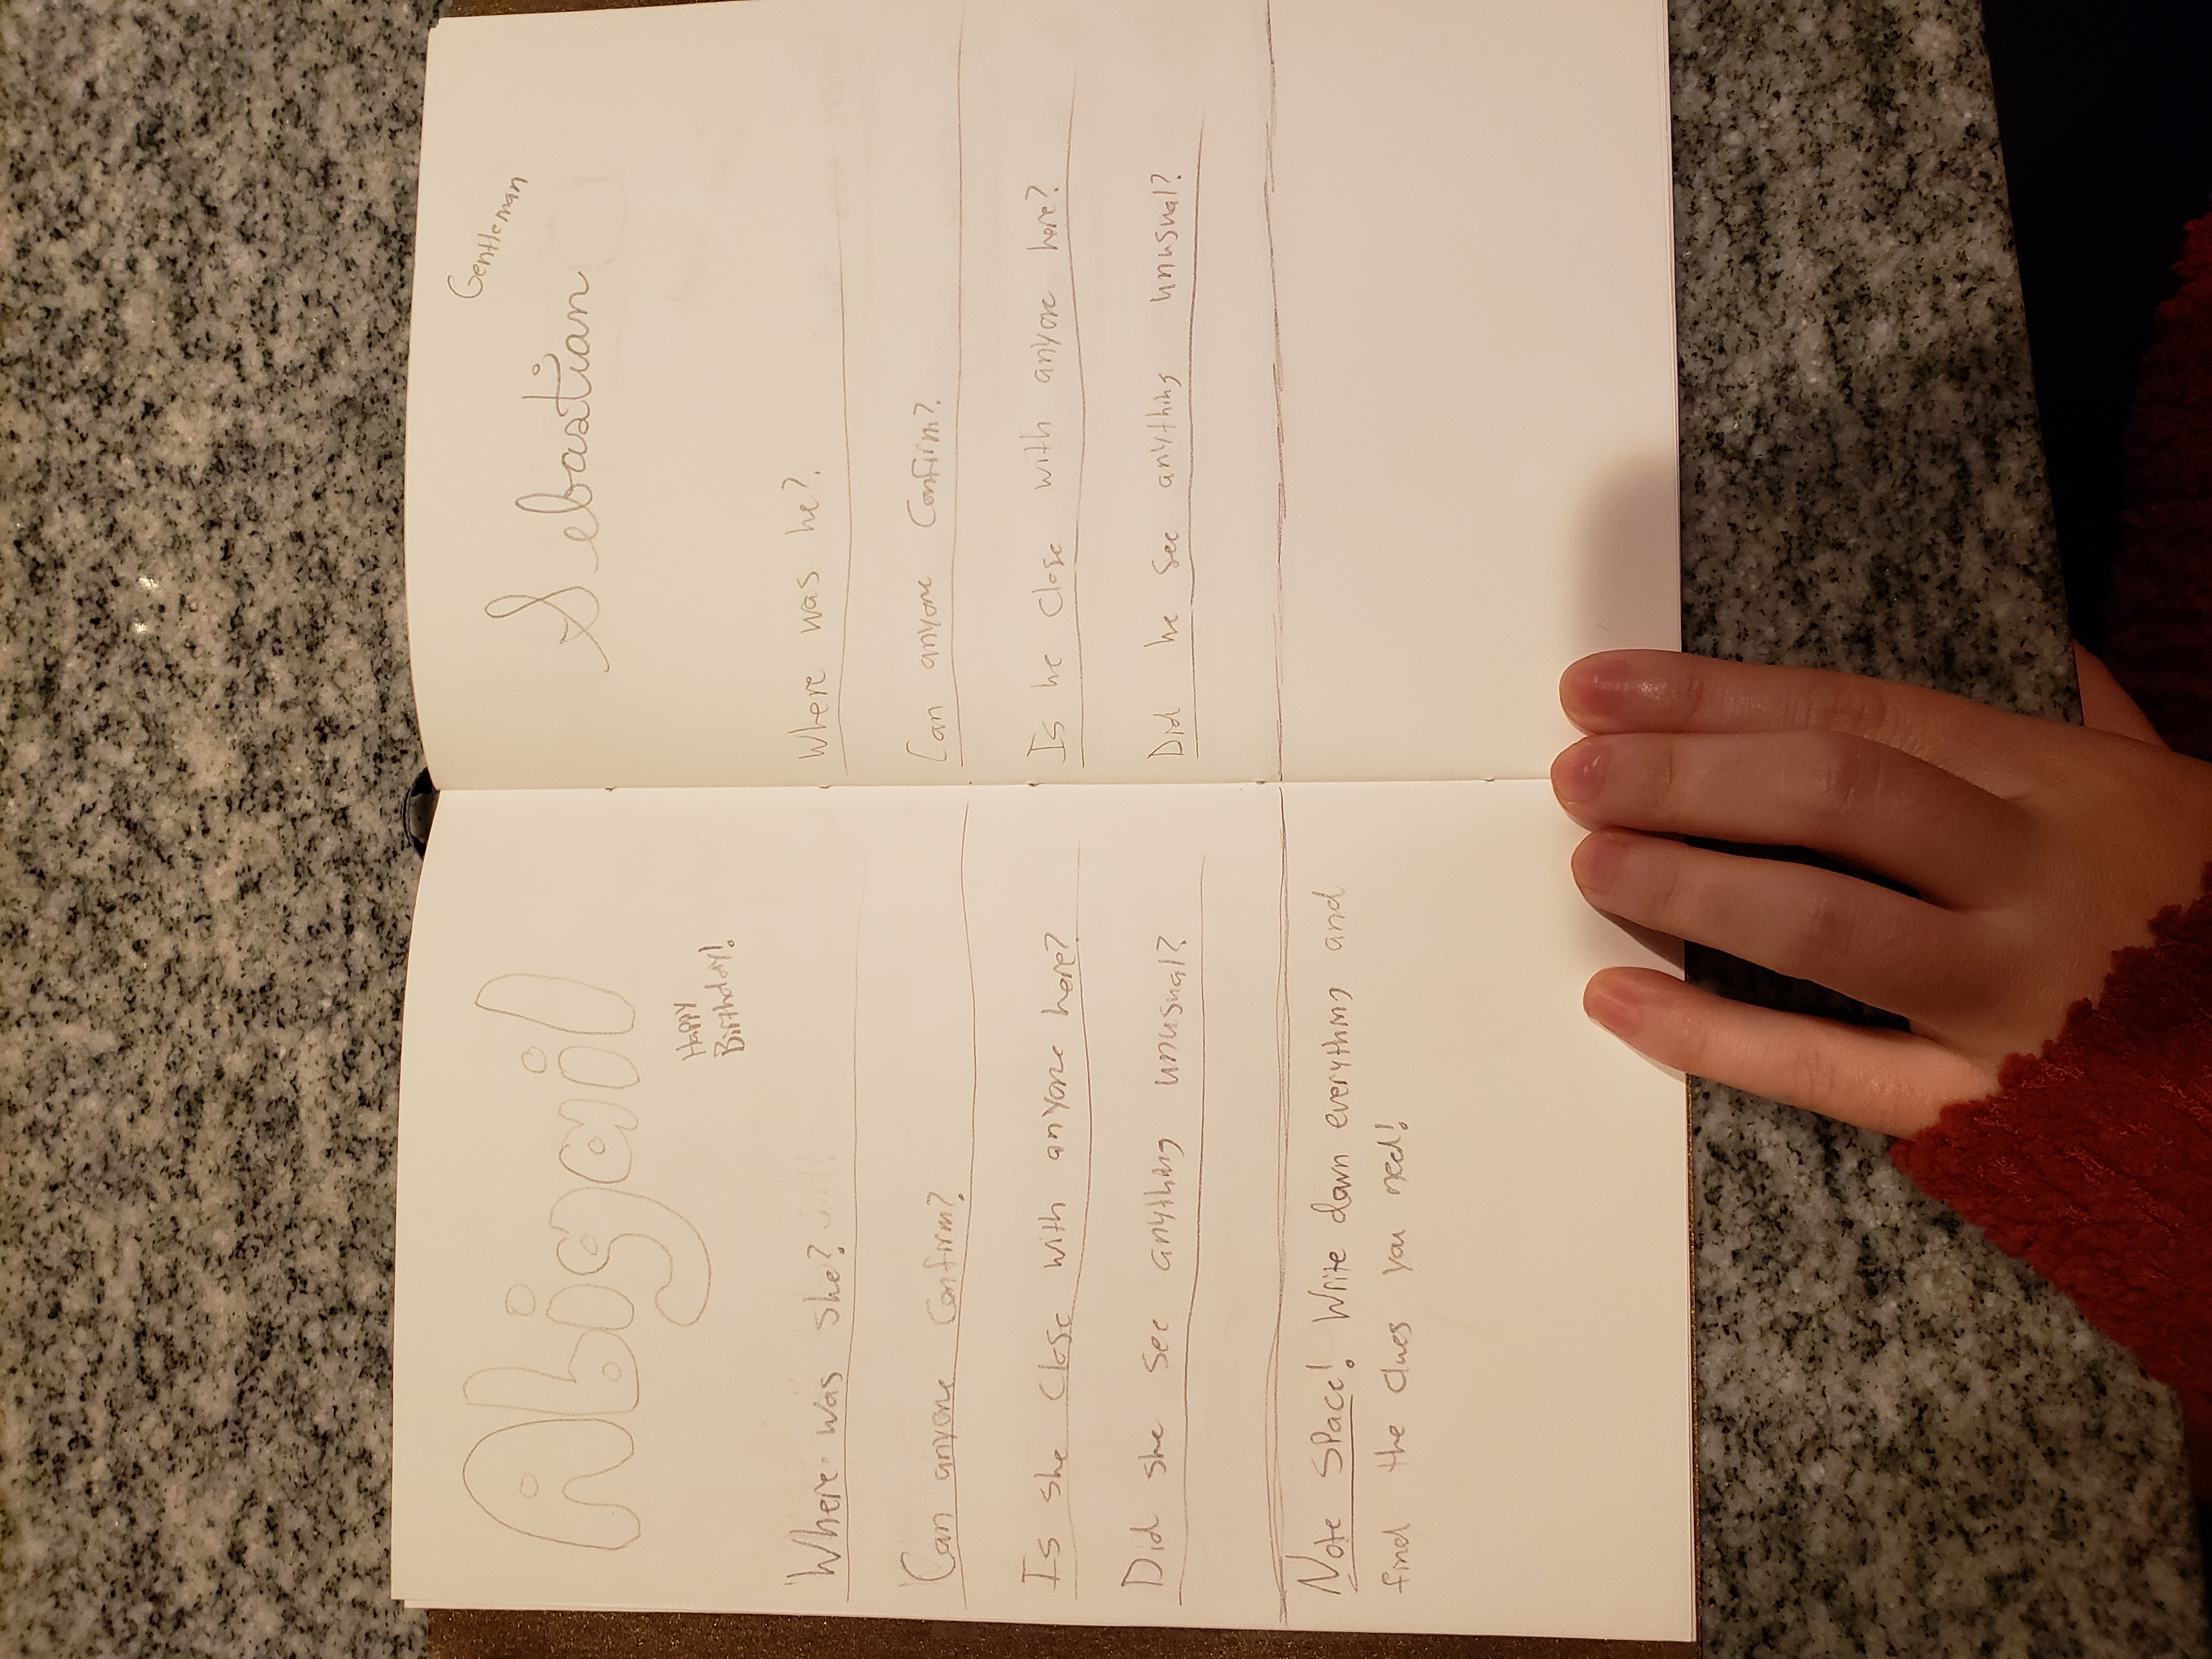 Abigail
Happy
Birthday!
Where was she?
Can anyone Confirm?
Is she close with anyone here?
Did she see anything unusual?
Note Space! Write down everything and
find the clues you need!
Gentleman
Sebastian
Where was he?
Can anyone Confirm?
Is he close with anyone here?
Did he see anything unusual?